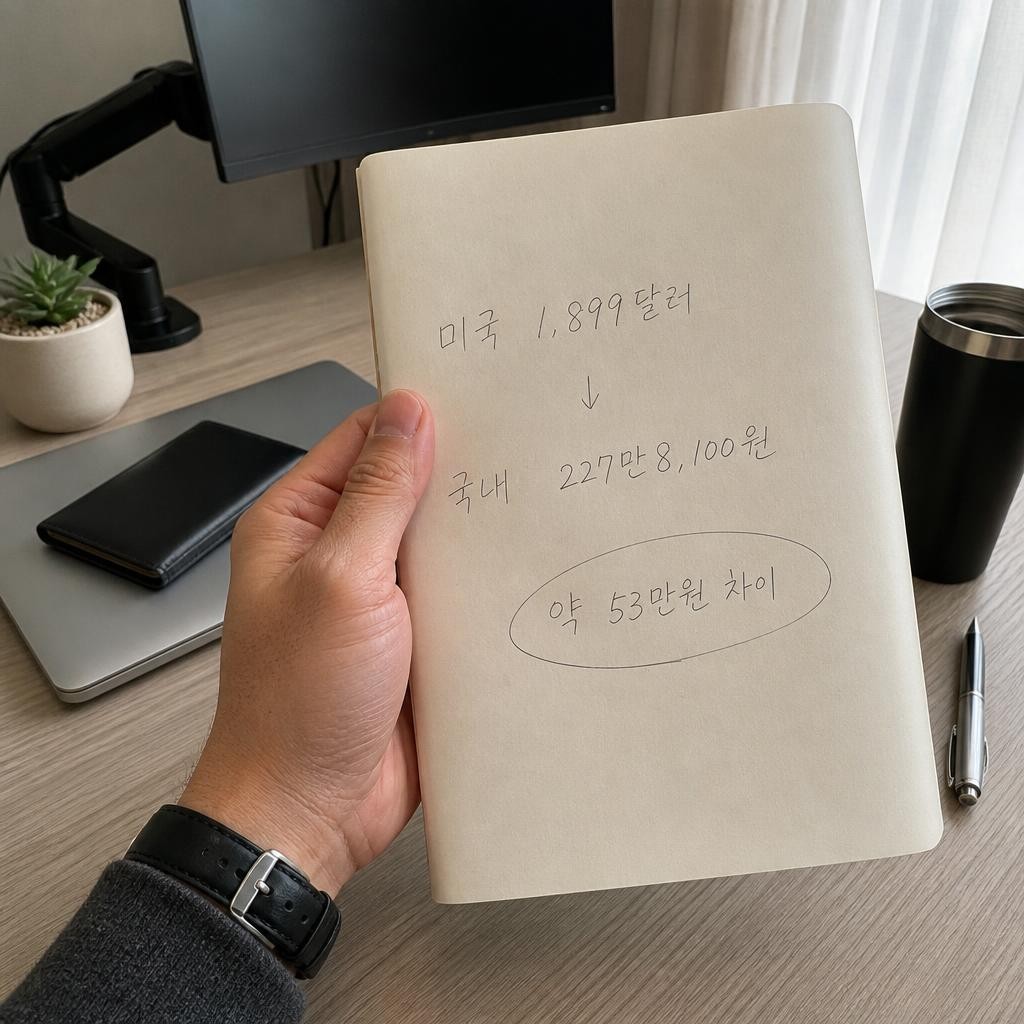 미국 1,899달러
↓
국내 227만 8,100원
약 53만원 차이